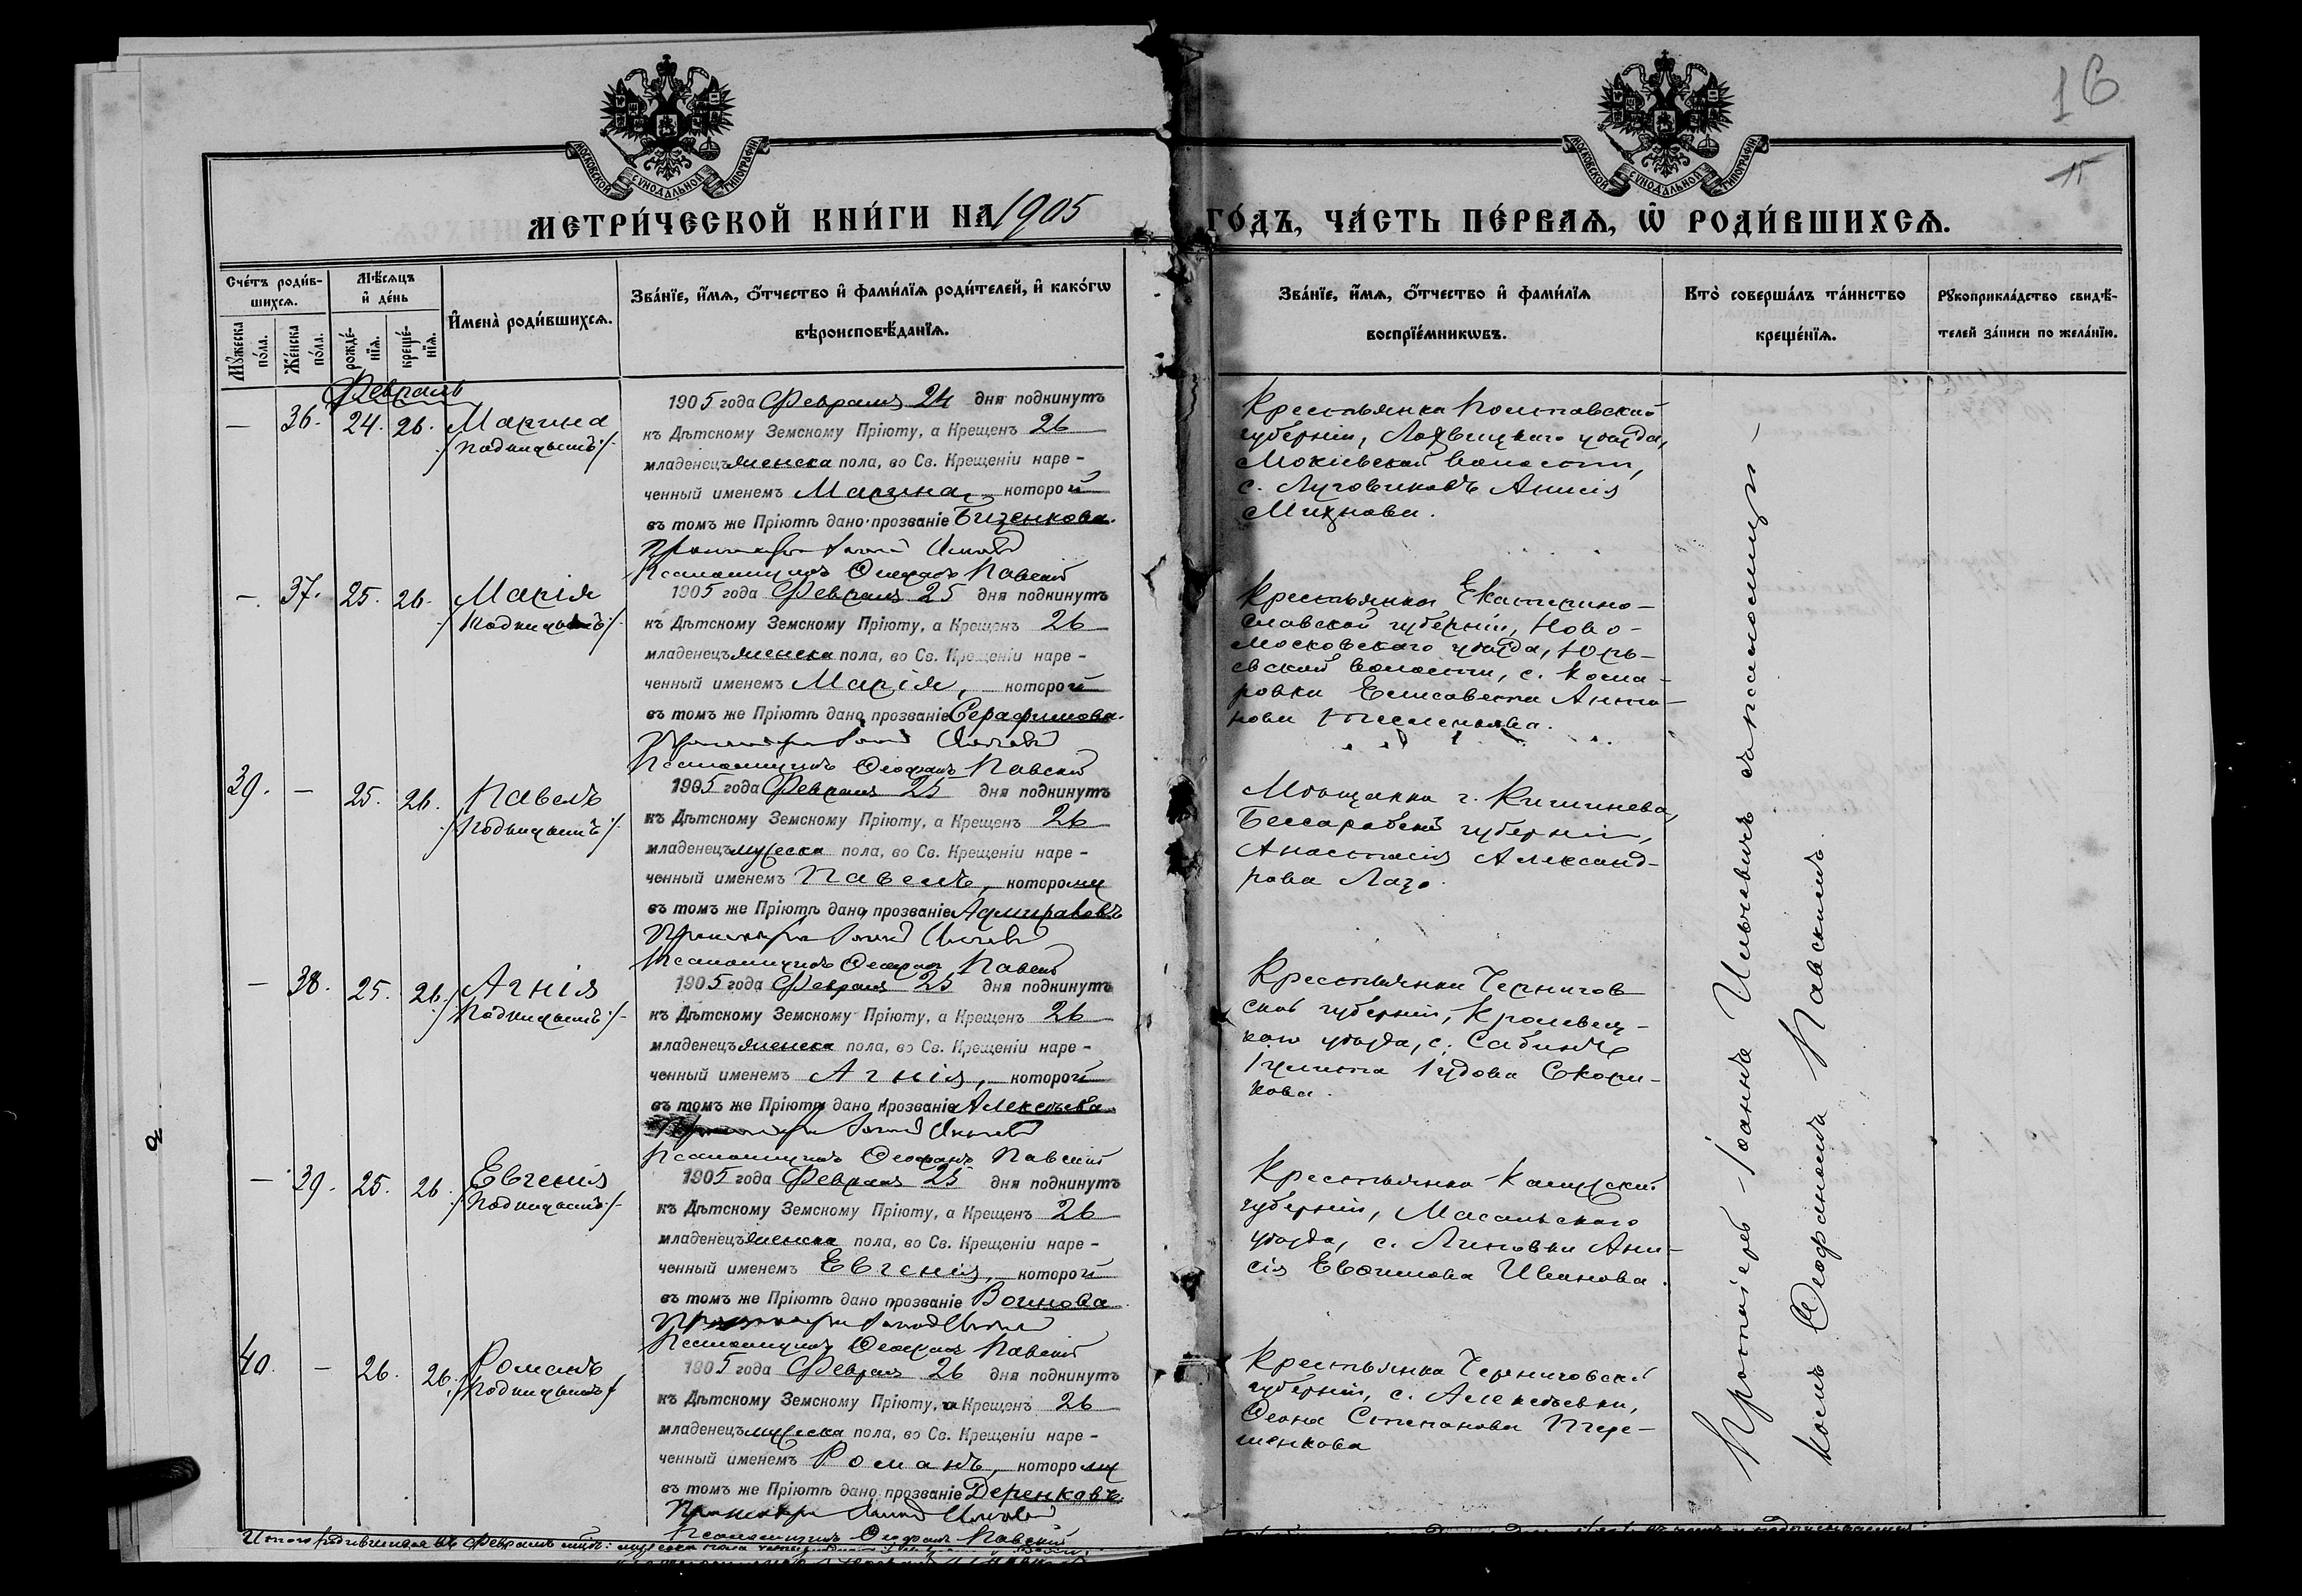 МОСКОВСКОЙ СѴНОДАЛЬНОЙ ТИПОГРАФІИ
МОСКОВСКОЙ СѴНОДАЛЬНОЙ ТИПОГРАФІИ
16
15
МЕТРИ́ЧЕСКОЙ КНИ́ГИ НА 1905
ГО́ДЪ, ЧА́СТЬ ПЕ́РВАѦ, Ѡ҆ РОДИ́ВШИХСѦ.
Сче́тъ роди́в-
шихсѧ.
Мꙋ́жеска по́ла.
Же́нска по́ла.
Мѣ́сѧцъ
и҆ де́нь
рожде́-
нїѧ.
креще́-
нїѧ.
И҆мена̀ роди́вшихсѧ.
Зва́нїе, и҆́мѧ, ѻ҆́тчество и҆ фами́лїѧ роди́телей, и҆ како́гѡ
вѣроисповѣ́данїѧ.
Зва́нїе, и҆́мѧ, ѻ҆́тчество и҆ фами́лїѧ
воспрїе́мникѡвъ.
Кто̀ соверша́лъ та́инство
креще́нїѧ.
Рꙋкоприкла́дство свидѣ́-
телей за́писи по жела́нїю.
Февраль
— 36. 24. 26. Марина
/Подкидышъ/
1905 года Февраля 24 дня подкинутъ
къ Дѣтскому Земскому Пріюту, а Крещенъ 26
младенецъ женска пола, во Св. Крещеніи наре-
ченный именемъ Марина, которой
въ томъ же Пріютѣ дано прозваніе Бизенкова.
Псаломщикъ Ѳеофанъ Павскій
Крестьянка Полтавской
губерніи, Лохвицкаго уѣзда,
волости,
с. Луговиковъ Анисія
Михнова.
— 37. 25. 26. Марія
/Подкидышъ/
1905 года Февраля 25 дня подкинутъ
къ Дѣтскому Земскому Пріюту, а Крещенъ 26
младенецъ женска пола, во Св. Крещеніи наре-
ченный именемъ Марія, которой
въ томъ же Пріютѣ дано прозваніе Серафимова.
Псаломщикъ Ѳеофанъ Павскій
Крестьянка Екатерино-
славской губерніи, Ново-
московскаго уѣзда, Юрь-
евской волости, с.
Елисавета Анто-
нова
39. — 25. 26. Павелъ
/Подкидышъ/
1905 года Февраля 25 дня подкинутъ
къ Дѣтскому Земскому Пріюту, а Крещенъ 26
младенецъ мужеска пола, во Св. Крещеніи наре-
ченный именемъ Павелъ, которому
въ томъ же Пріютѣ дано прозваніе Адмираловъ
Псаломщикъ Ѳеофанъ Павскій
Мѣщанка г. Кишинева,
Бессарабской губерніи,
Анастасія Александ-
рова Лазо.
— 38. 25. 26. Агнія
/Подкидышъ/
1905 года Февраля 25 дня подкинутъ
къ Дѣтскому Земскому Пріюту, а Крещенъ 26
младенецъ женска пола, во Св. Крещеніи наре-
ченный именемъ Агнія, которой
въ томъ же Пріютѣ дано прозваніе Алексѣева
Псаломщикъ Ѳеофанъ Павскій
Крестьянка Чернигов-
ской губерніи, Кролевец-
каго уѣзда, с.
Іулитта Іудова Скори-
кова.
— 39. 25. 26. Евгенія
/Подкидышъ/
1905 года Февраля 25 дня подкинутъ
къ Дѣтскому Земскому Пріюту, а Крещенъ 26
младенецъ женска пола, во Св. Крещеніи наре-
ченный именемъ Евгенія, которой
въ томъ же Пріютѣ дано прозваніе Воинова
Псаломщикъ Ѳеофанъ Павскій
Крестьянка Калужской
губерніи, Масальскаго
уѣзда, с. Липовки Ани-
сія Евѳимова Иванова.
40. — 26. 26. Романъ
/Подкидышъ/
1905 года Февраля 26 дня подкинутъ
къ Дѣтскому Земскому Пріюту, а Крещенъ 26
младенецъ мужеска пола, во Св. Крещеніи наре-
ченный именемъ Романъ, которому
въ томъ же Пріютѣ дано прозваніе Деренковъ
Псаломщикъ Ѳеофанъ Павскій
Крестьянка Черниговской
губерніи, с. Алексѣевки,
Степанова
Протоіерей Іоаннъ Ильичевъ съ псаломщи-
комъ Ѳеофаномъ Павскимъ.
Итого родившихся въ Февралѣ мцѣ: мужеска пола